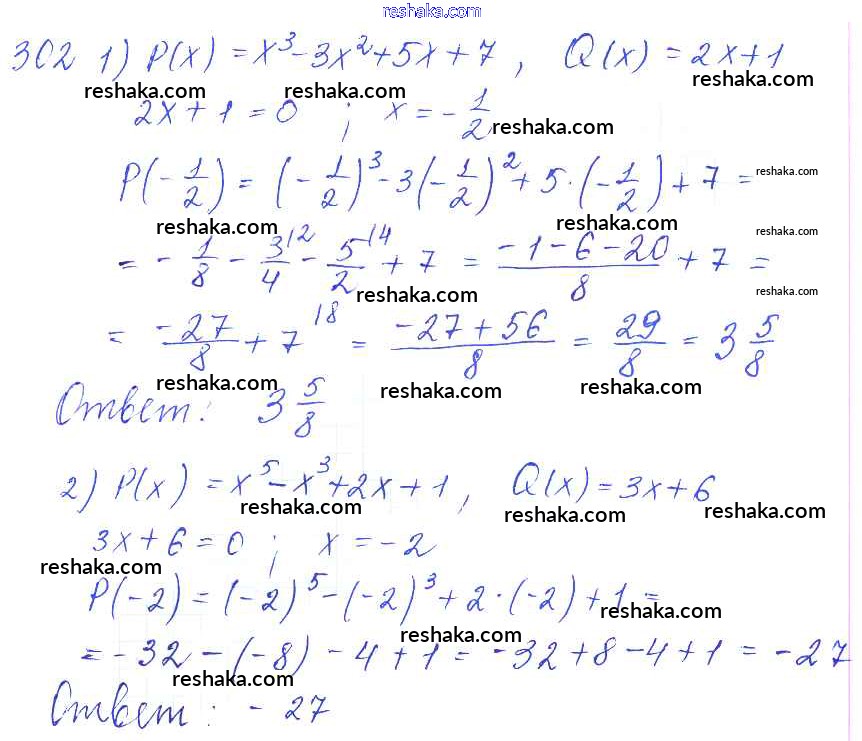 reshaka.com
302 1) P(x) = x³ - 3x² + 5x + 7, Q(x) = 2x + 1
reshaka.com reshaka.com reshaka.com
2x + 1 = 0 ; x = -1/2
reshaka.com
P(-1/2) = (-1/2)³ - 3(-1/2)² + 5·(-1/2) + 7 =
reshaka.com
reshaka.com reshaka.com
reshaka.com
= -1/8 - 3/4 |2 - 5/2 |4 + 7 = (-1-6-20)/8 + 7 =
reshaka.com reshaka.com
= -27/8 + 7 |8 = (-27+56)/8 = 29/8 = 3 5/8
reshaka.com reshaka.com reshaka.com
Ответ: 3 5/8
2) P(x) = x⁵ - x³ + 2x + 1, Q(x) = 3x + 6
reshaka.com reshaka.com reshaka.com
3x + 6 = 0 ; x = -2
reshaka.com
P(-2) = (-2)⁵ - (-2)³ + 2·(-2) + 1 =
reshaka.com
reshaka.com
= -32 - (-8) - 4 + 1 = -32 + 8 - 4 + 1 = -27
reshaka.com
Ответ: -27